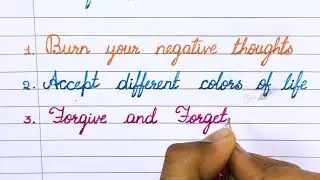 1. Burn your negative thoughts
2. Accept different colors of life
3. Forgive and Forget